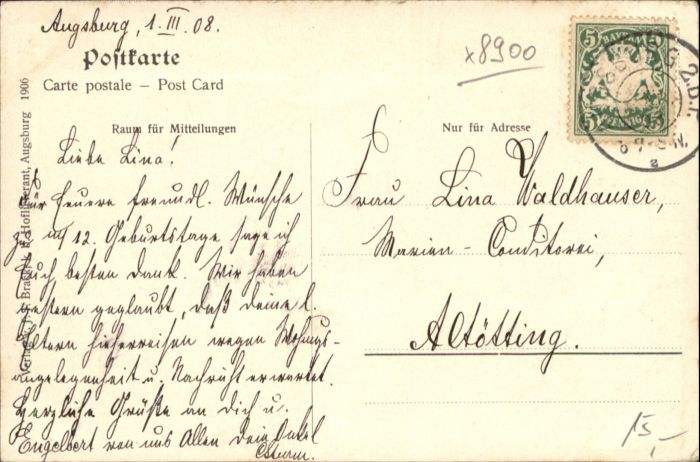 Augsburg, 1. III. 08.
Postkarte
Carte postale – Post Card
x8900
BAYERN
5 5
PFENNIG
5 5
Raum für Mitteilungen
Nur für Adresse
Liebe Lina!
Für Euere freundl. Wünsche
zum 12. Geburtstage sage ich
Euch besten Dank. Wir haben
gestern geglaubt, daß deine l.
Eltern hieherreisen wegen Wohnungs-
angelegenheit u. Nachricht erwartet.
Herzliche Grüße an Dich u.
Engelbert von uns Allen Dein Onkel
Frau Lina Waldhauser,
Marien-Conditorei,
Altötting.
15,-
Hoflieferant, Augsburg 1906